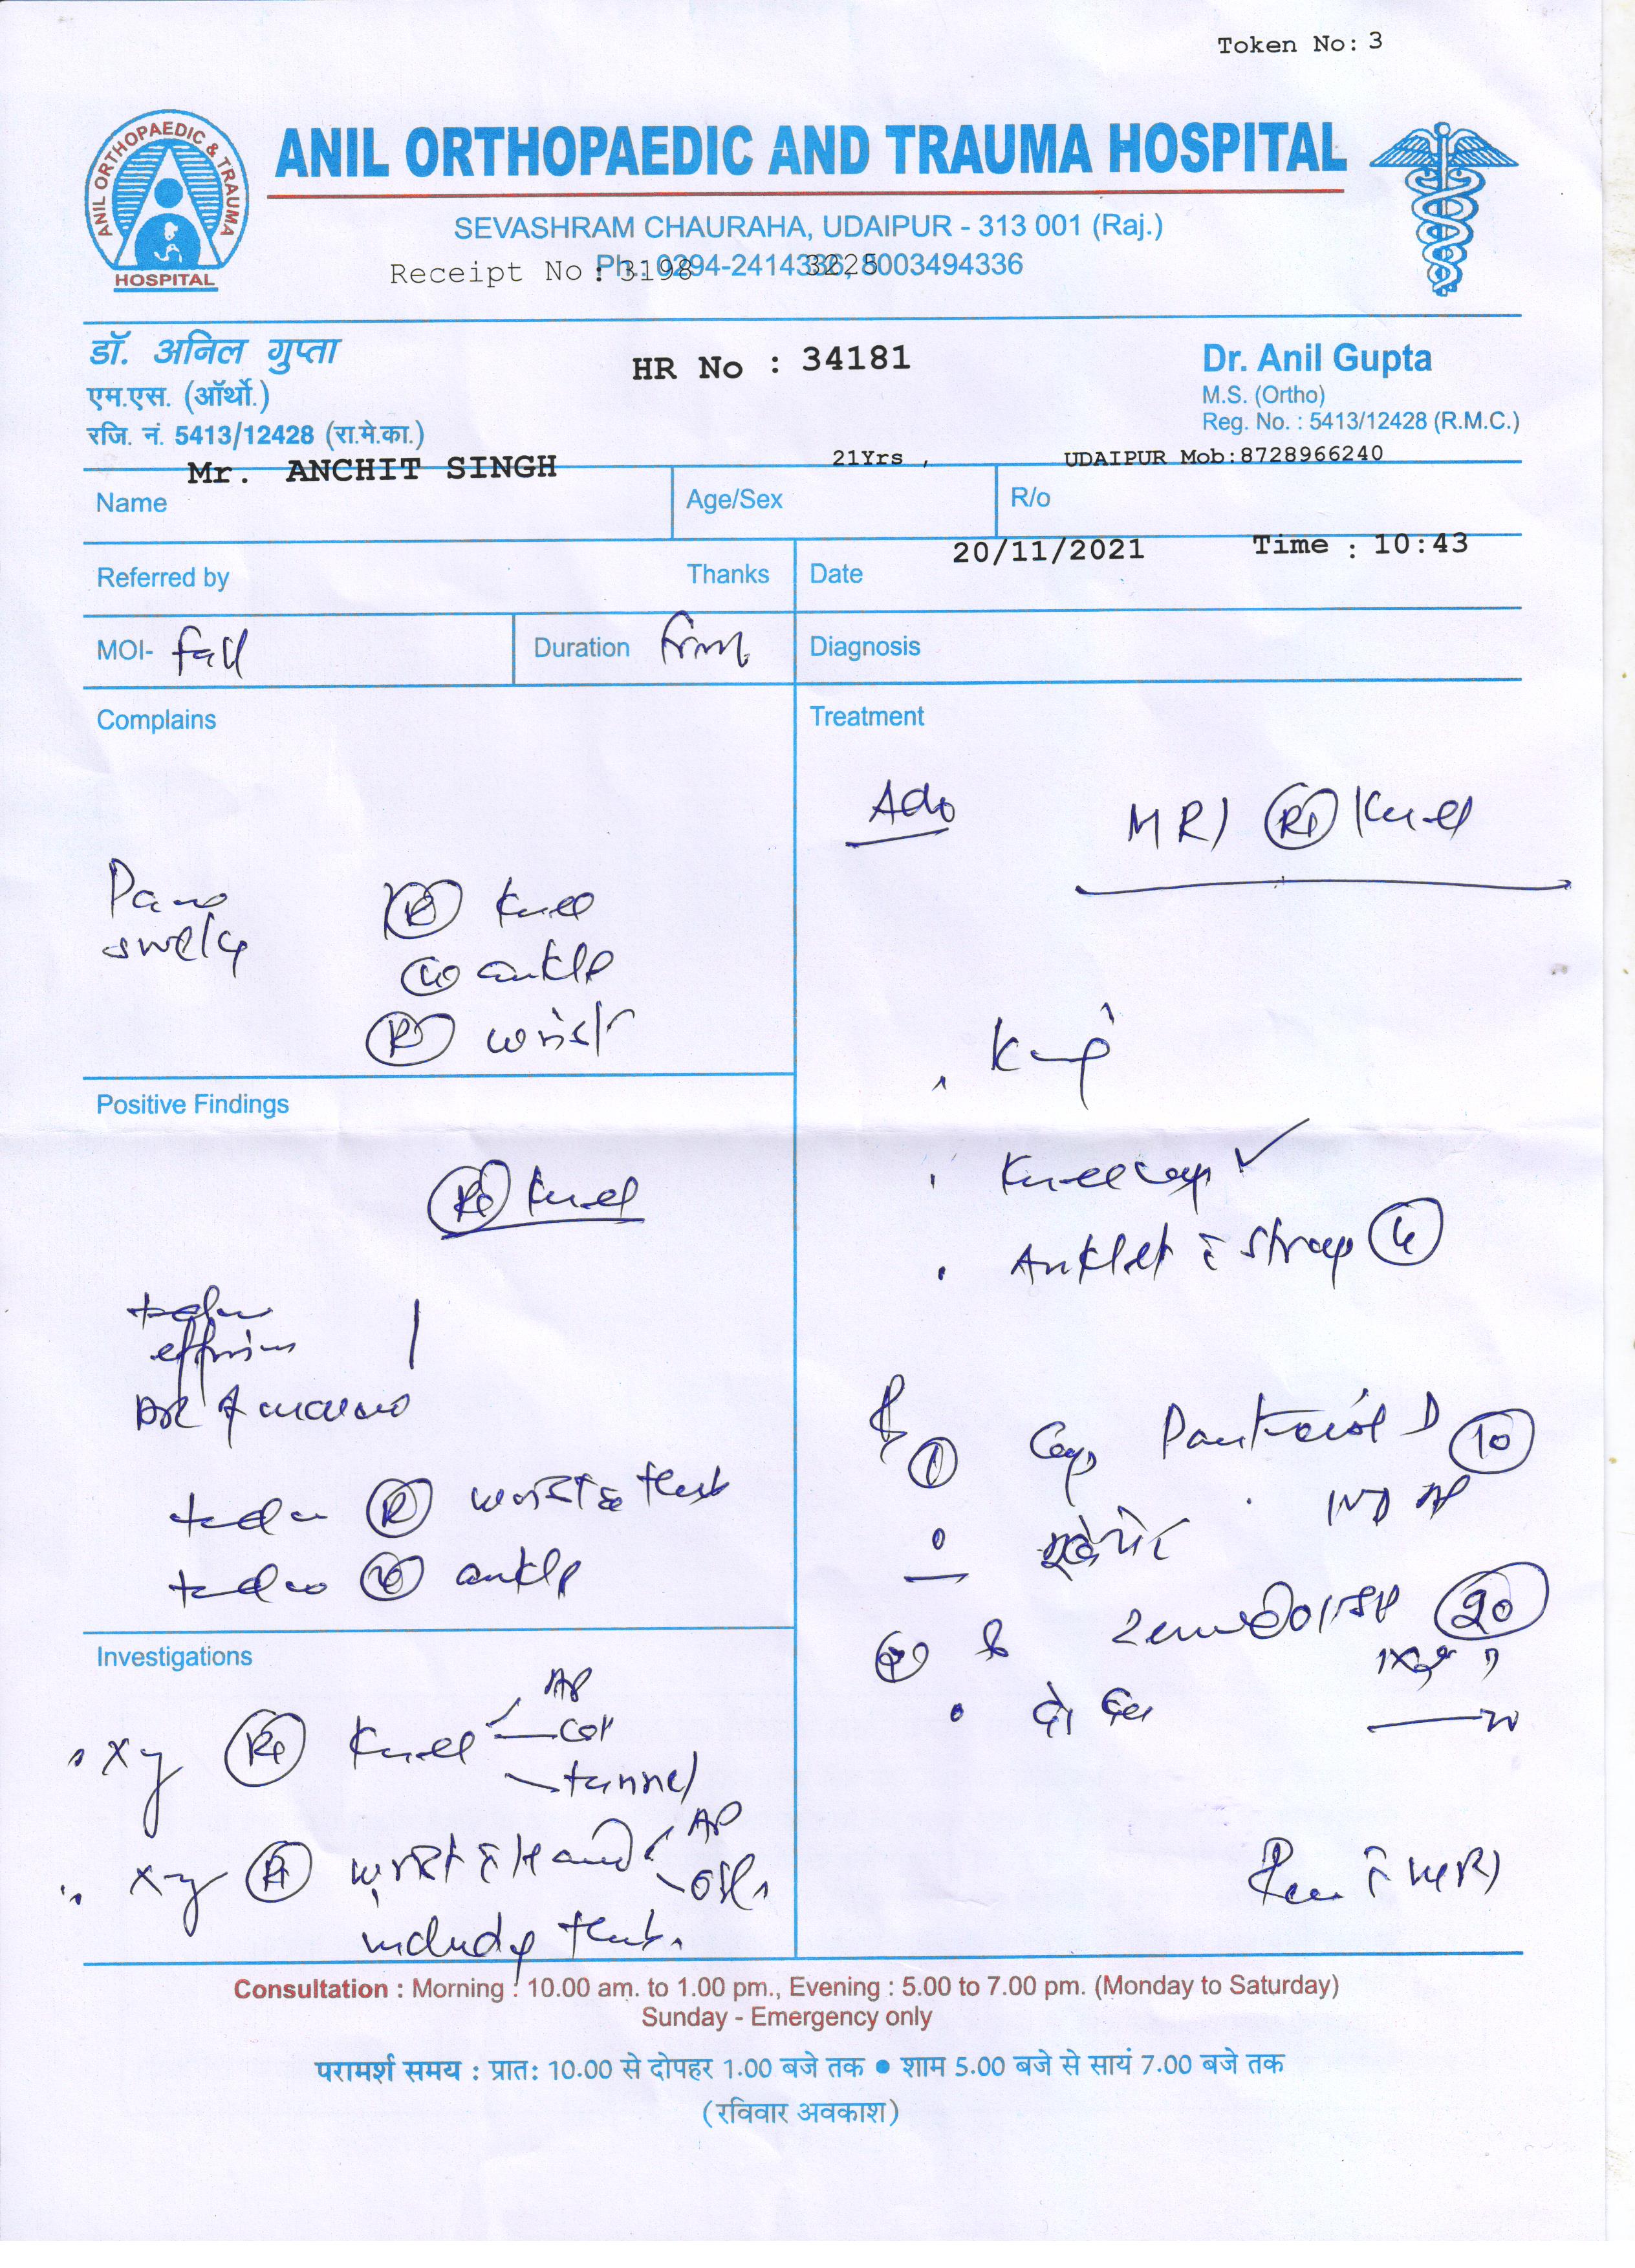 Token No: 3
ANIL ORTHOPAEDIC & TRAUMA
HOSPITAL
ANIL ORTHOPAEDIC AND TRAUMA HOSPITAL
SEVASHRAM CHAURAHA, UDAIPUR - 313 001 (Raj.)
Receipt No : 3198 3225
Ph.: 0294-2414336, 8003494336
डॉ. अनिल गुप्ता
एम.एस. (ऑर्थो.)
रजि. नं. 5413/12428 (रा.मे.का.)
HR No : 34181
Dr. Anil Gupta
M.S. (Ortho)
Reg. No. : 5413/12428 (R.M.C.)
Name Mr. ANCHIT SINGH
Age/Sex 21Yrs ,
R/o UDAIPUR Mob:8728966240
Referred by Thanks
Date 20/11/2021 Time : 10:43
MOI- fall
Duration
Diagnosis
Complains
Pain (R) knee
swelg ankle
(R) wrist
Positive Findings
(Rt) knee
effusion
(R) wrist & thumb
ankle
Investigations
Xy (Rt) Knee AP
tunnel
Xy (R) wrist c Hand AP
including thumb.
Treatment
Adv MRI (Rt) Knee
Kneecap ✓
Anklet c strap
1 Cap Pantocid D 10
20
दो
Rev c MRI
Consultation : Morning : 10.00 am. to 1.00 pm., Evening : 5.00 to 7.00 pm. (Monday to Saturday)
Sunday - Emergency only
परामर्श समय : प्रात: 10.00 से दोपहर 1.00 बजे तक ● शाम 5.00 बजे से सायं 7.00 बजे तक
(रविवार अवकाश)